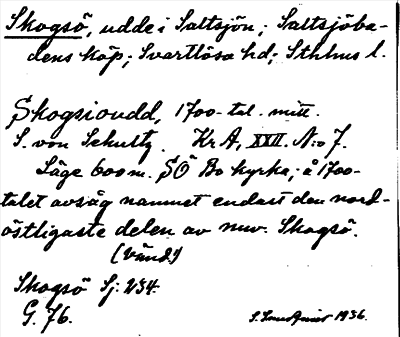 Skogsö, udde i Saltsjön; Saltsjöba-
dens köp; Svartlösa hd; Sthlms l.
Skogsioudd, 1700-tal. mitt.
S. von Schultz. Kr A, XXII. N:o 7.
Läge 600 m. SÖ Bo kyrka; å 1700-
talet avsåg namnet endast den nord-
östligaste delen av nuv. Skogsö.
(Vänd!)
Skogsö Sj: 234.
G. 76.
S. 1936.